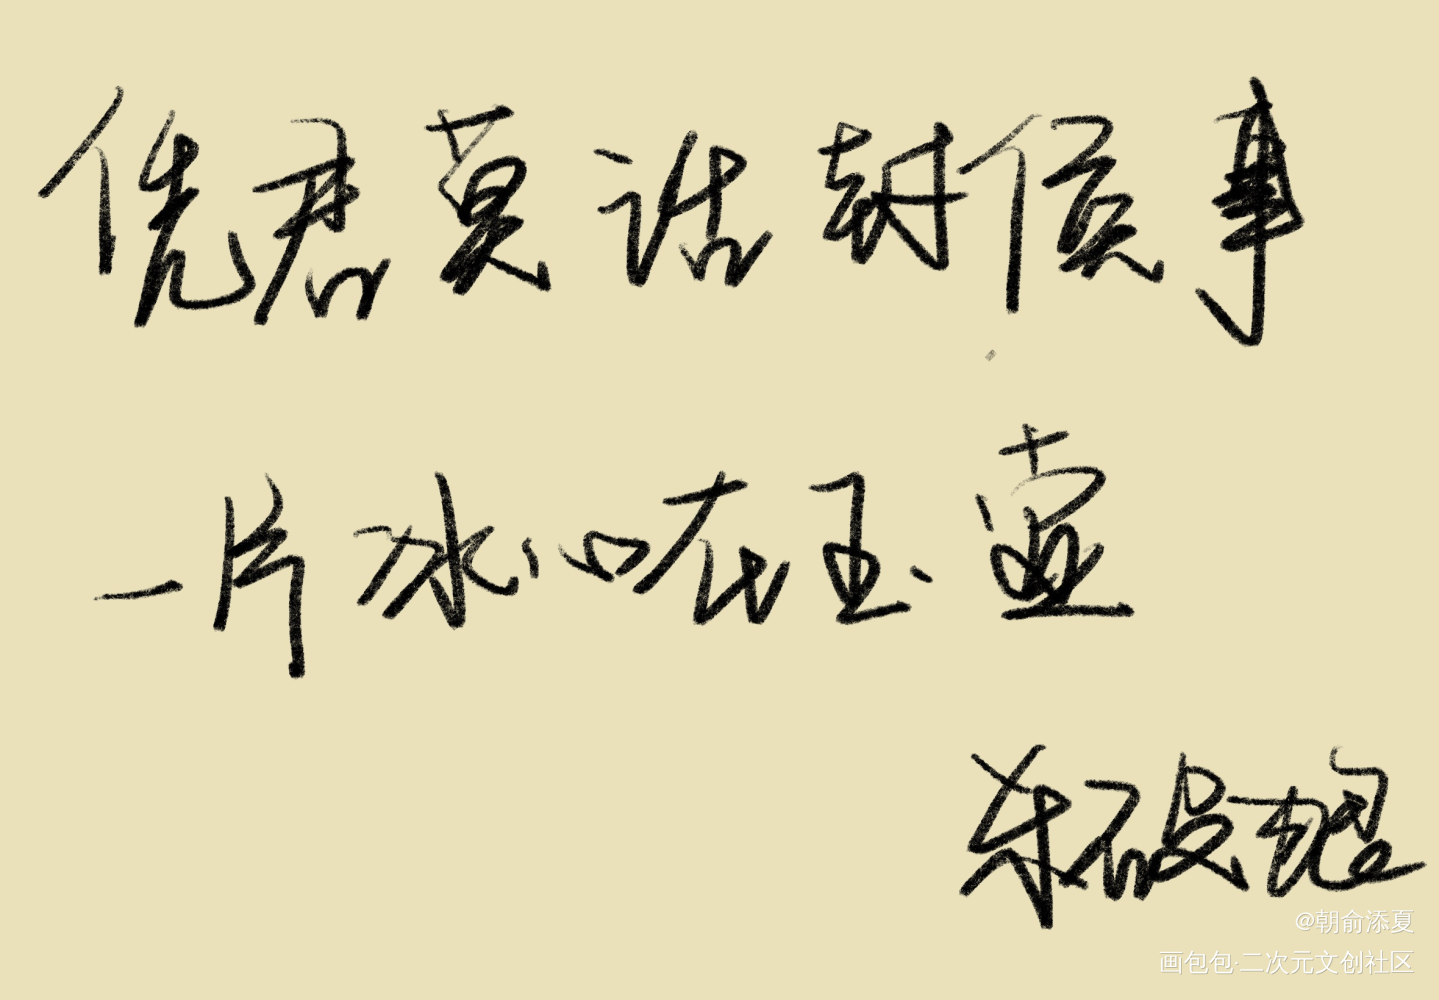 凭君莫话封侯事
一片冰心在玉壶
@朝俞添夏
画包包·二次元文创社区